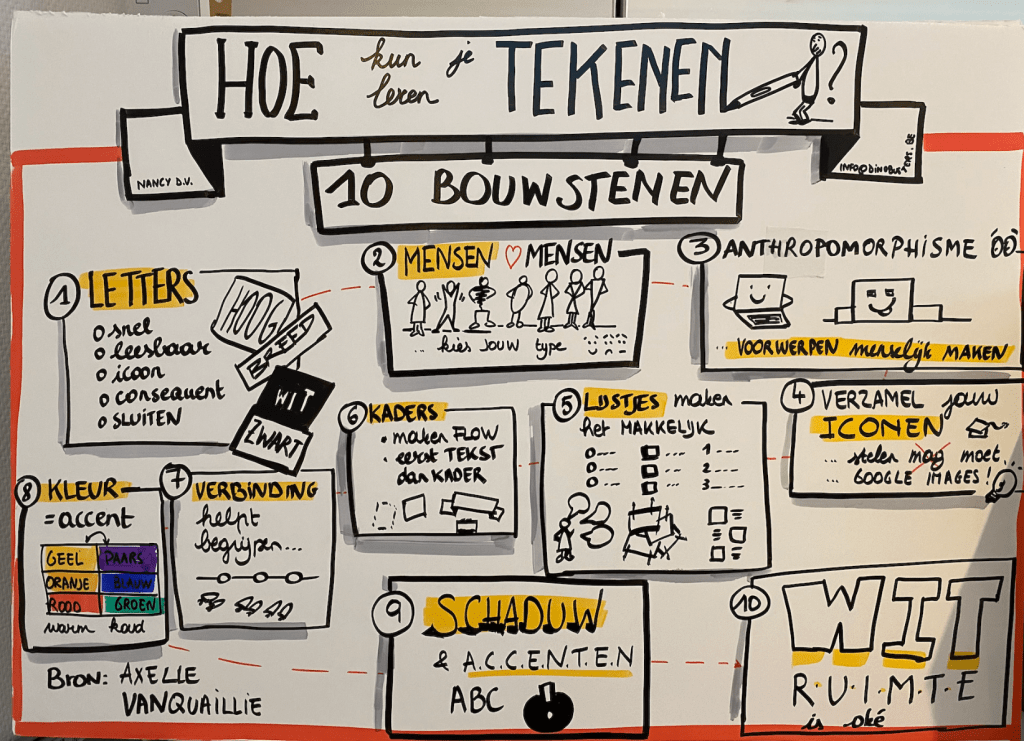 HOE kun je leren TEKENEN?
NANCY D.V.
10 BOUWSTENEN
1 LETTERS
o snel
o leesbaar
o icoon
o consequent
o SLUITEN
HOOG
BREED
WIT
ZWART
2 MENSEN ♡ MENSEN
... kies JOUW type
3 ANTHROPOMORPHISME
... VOORWERPEN menselijk MAKEN
4 VERZAMEL jouw
ICONEN
... stelen mag moet
... GOOGLE IMAGES!
5 LIJSTJES maken
het MAKKELIJK
1
2
3
6 KADERS
• maken FLOW
• eerst TEKST
dan KADER
7 VERBINDING
helpt
begrijpen...
8 KLEUR
= accent
GEEL PAARS
ORANJE BLAUW
ROOD GROEN
warm koud
9 SCHADUW
& A.C.C.E.N.T.E.N
ABC
10 WIT
R·U·I·M·T·E
is oké
Bron: AXELLE
VANQUAILLIE